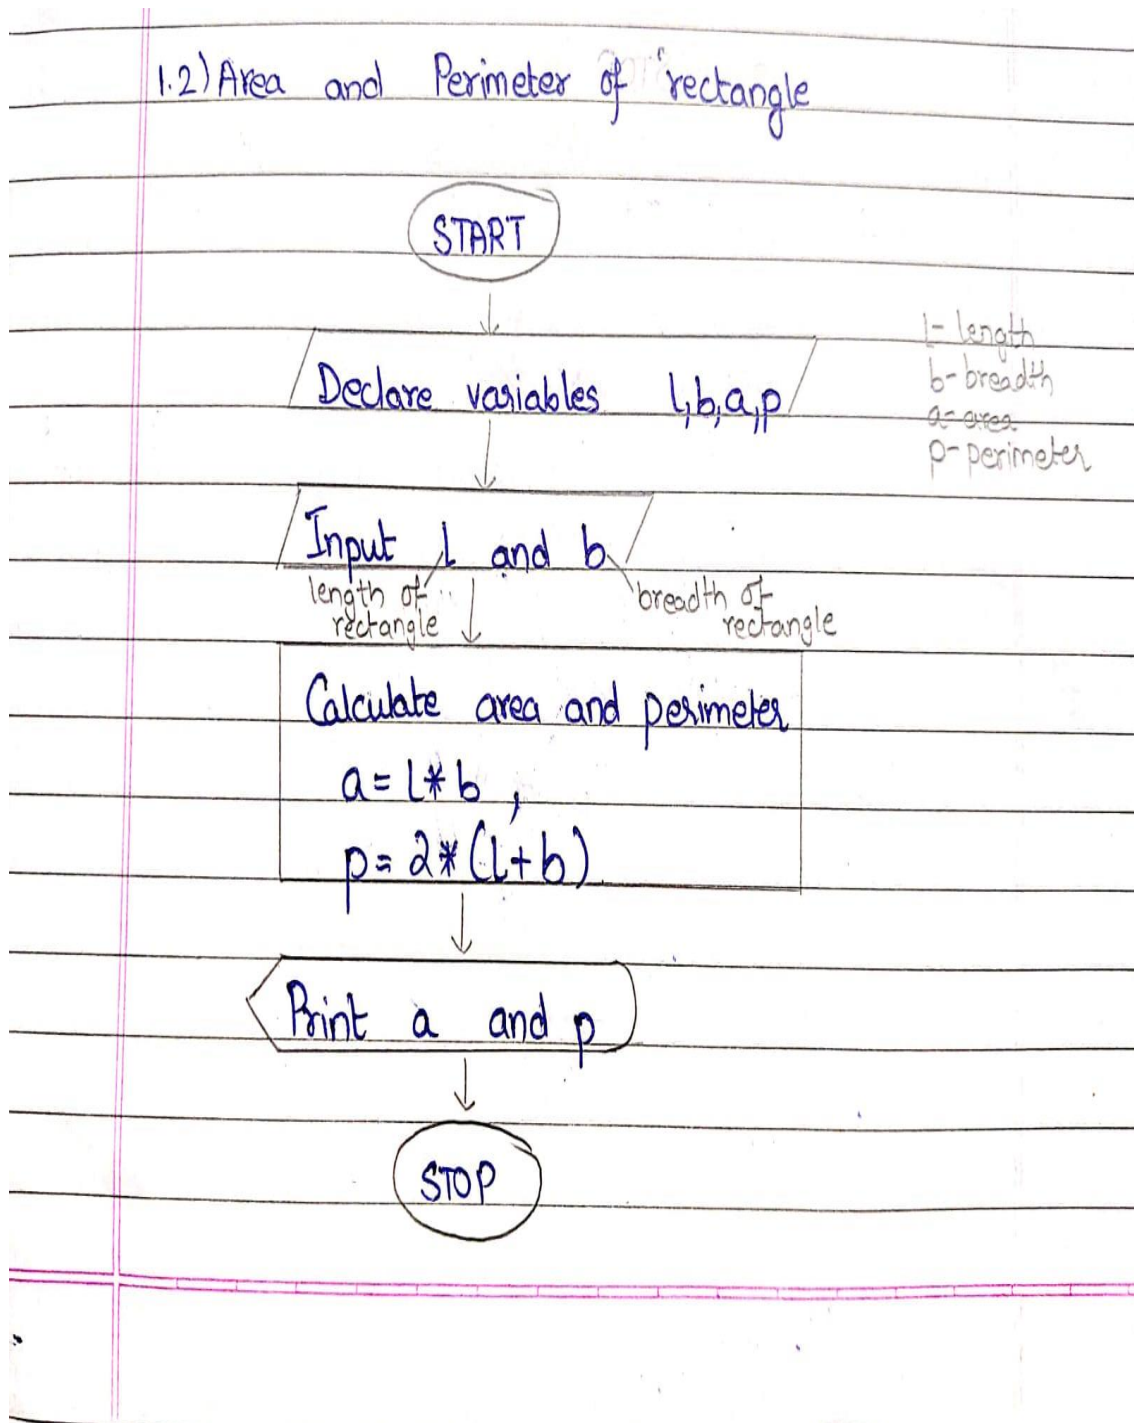 1.2) Area and Perimeter of rectangle
START
Declare variables l,b,a,p
l- length
b- breadth
a- area
p- perimeter
Input l and b
length of
rectangle
breadth of
rectangle
Calculate area and perimeter
a = l * b ,
p = 2 * (l + b)
Print a and p
STOP